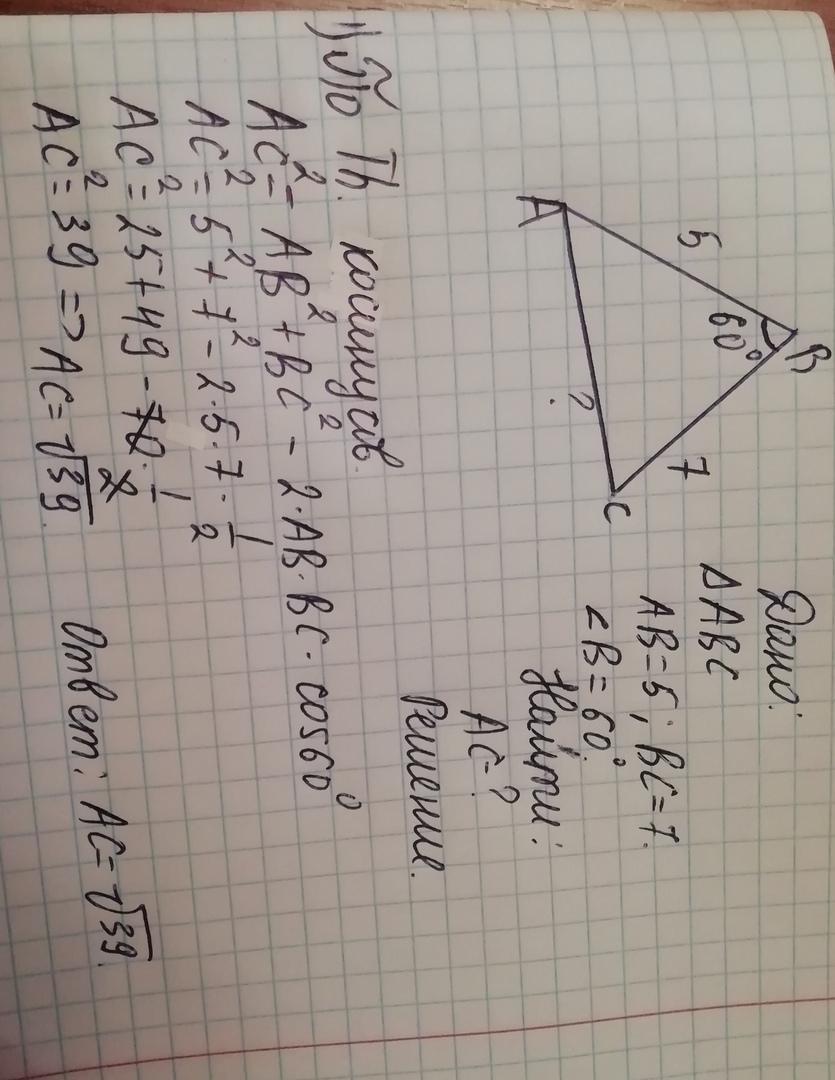 B
5
60°
7
A
?
C
Дано:
△ABC
AB=5; BC=7.
∠B=60°.
Найти:
AC=?
Решение.
1) По Th. косинусов.
AC²=AB²+BC²-2·AB·BC·cos60°
AC²=5²+7²-2·5·7·1/2
AC²=25+49-70·1/2
AC²=39=>AC=√39.
Ответ: AC=√39.